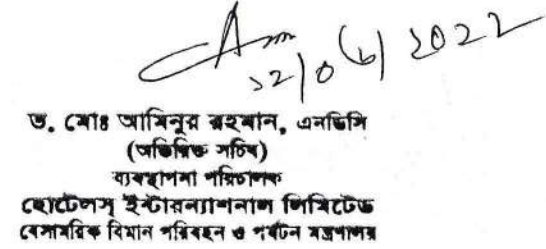 ১২/০৬/২০২২
ড. মোঃ আমিনুর রহমান, এনডিসি
(অতিরিক্ত সচিব)
ব্যবস্থাপনা পরিচালক
হোটেলস্ ইন্টারন্যাশনাল লিমিটেড
বেসামরিক বিমান পরিবহন ও পর্যটন মন্ত্রণালয়